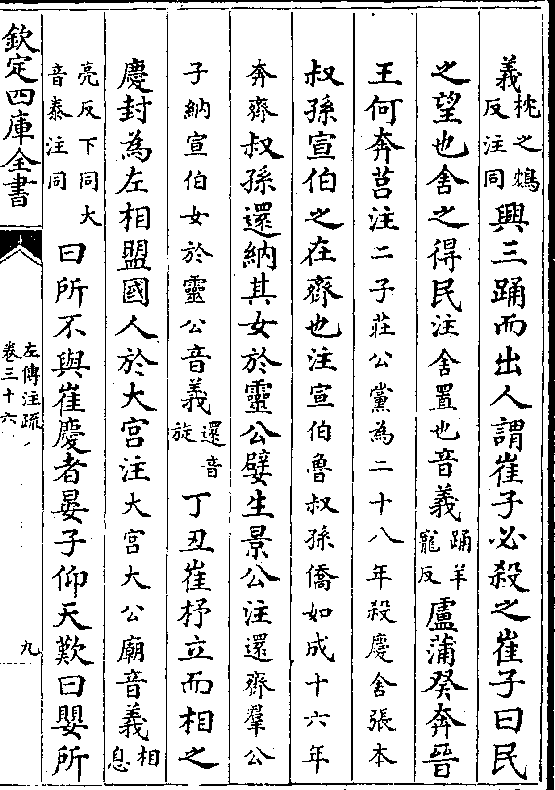 義枕之鴆反注同興三踊而出人謂崔子必殺之崔子曰民
之望也舍之得民注舍置也音義踊羊寵反盧蒲癸奔晉
王何奔莒注二子莊公黨為二十八年殺慶舍張本
叔孫宣伯之在齊也注宣伯魯叔孫僑如成十六年
奔齊叔孫還納其女於靈公嬖生景公注還齊羣公
子納宣伯女於靈公音義還音旋丁丑崔杼立而相之
慶封為左相盟國人於大宮注大宮大公廟音義相息
亮反下同大音泰注同曰所不與崔慶者晏子仰天歎曰嬰所
欽定四庫全書
左傳注疏
卷三十六
九